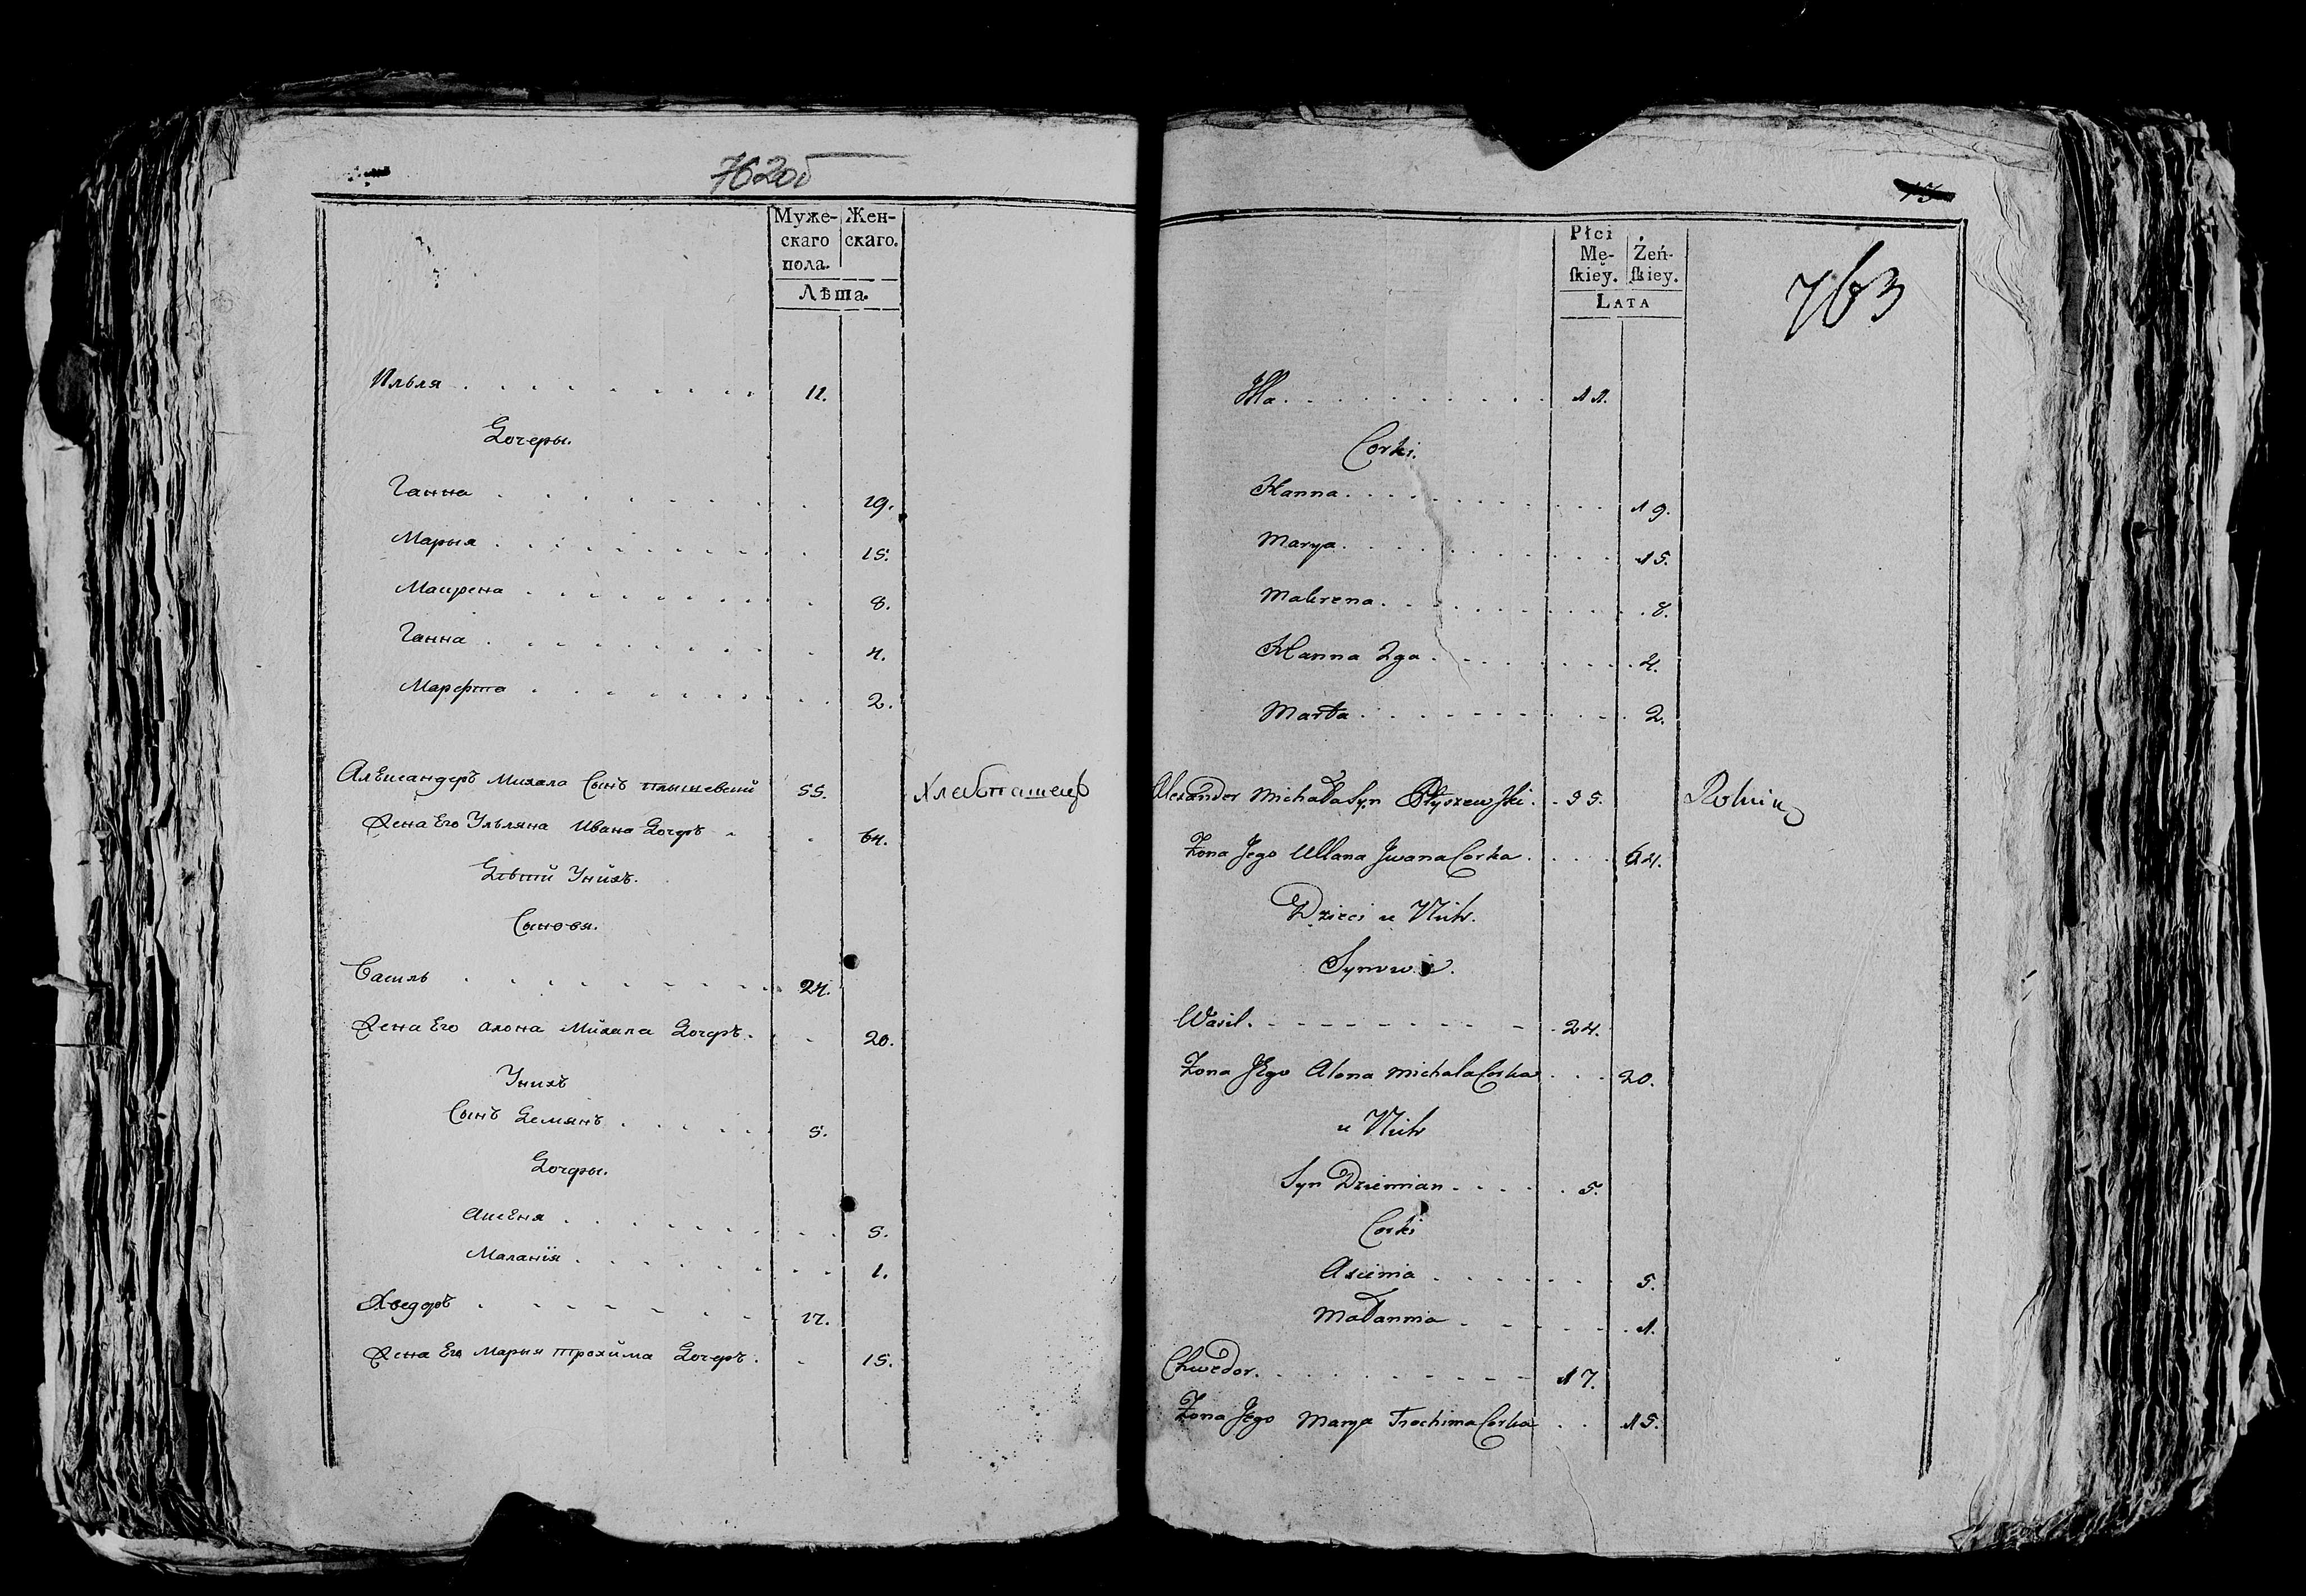 762об
Муже- Жен-
скаго скаго.
пола.
Лѣта.
Илья 11.
Дочеры.
Ганна 19.
Марыя 15.
Макрена 8.
Ганна 4.
Марфта 2.
Алѣксандеръ Михала Сынъ Плышевский 55. Хлебопашецъ
Жена Его Ульляна Ивана Дочеръ 64.
Дѣти Унихъ.
Сыновя.
Василь 24.
Жена Его Алона Михала Дочеръ 20.
Унихъ
Сынъ Демянъ 5.
Дочеры.
Аксеня 5.
Маланія 1.
Хведоръ 17.
Жена Его Марыя Трохима Дочеръ 15.
763
Płci
Mę- Żeń-
skiey. skiey.
LATA
Illa 11.
Corki.
Hanna 19.
Marya 15.
Makrena 8.
Hanna 2ga 4.
Marta 2.
Alexander Michała Syn Płyszewski 55. Rolnik
Żona Jego Ullana Jwana Corka 64.
Dzieci u Nich.
Synowie.
Wasil 24.
Żona Jego Alona Michała Corka 20.
u Nich
Syn Dziemian 5.
Corki
Axienia 5.
Małannia 1.
Chwedor 17.
Żona Jego Marya Trochima Corka 15.